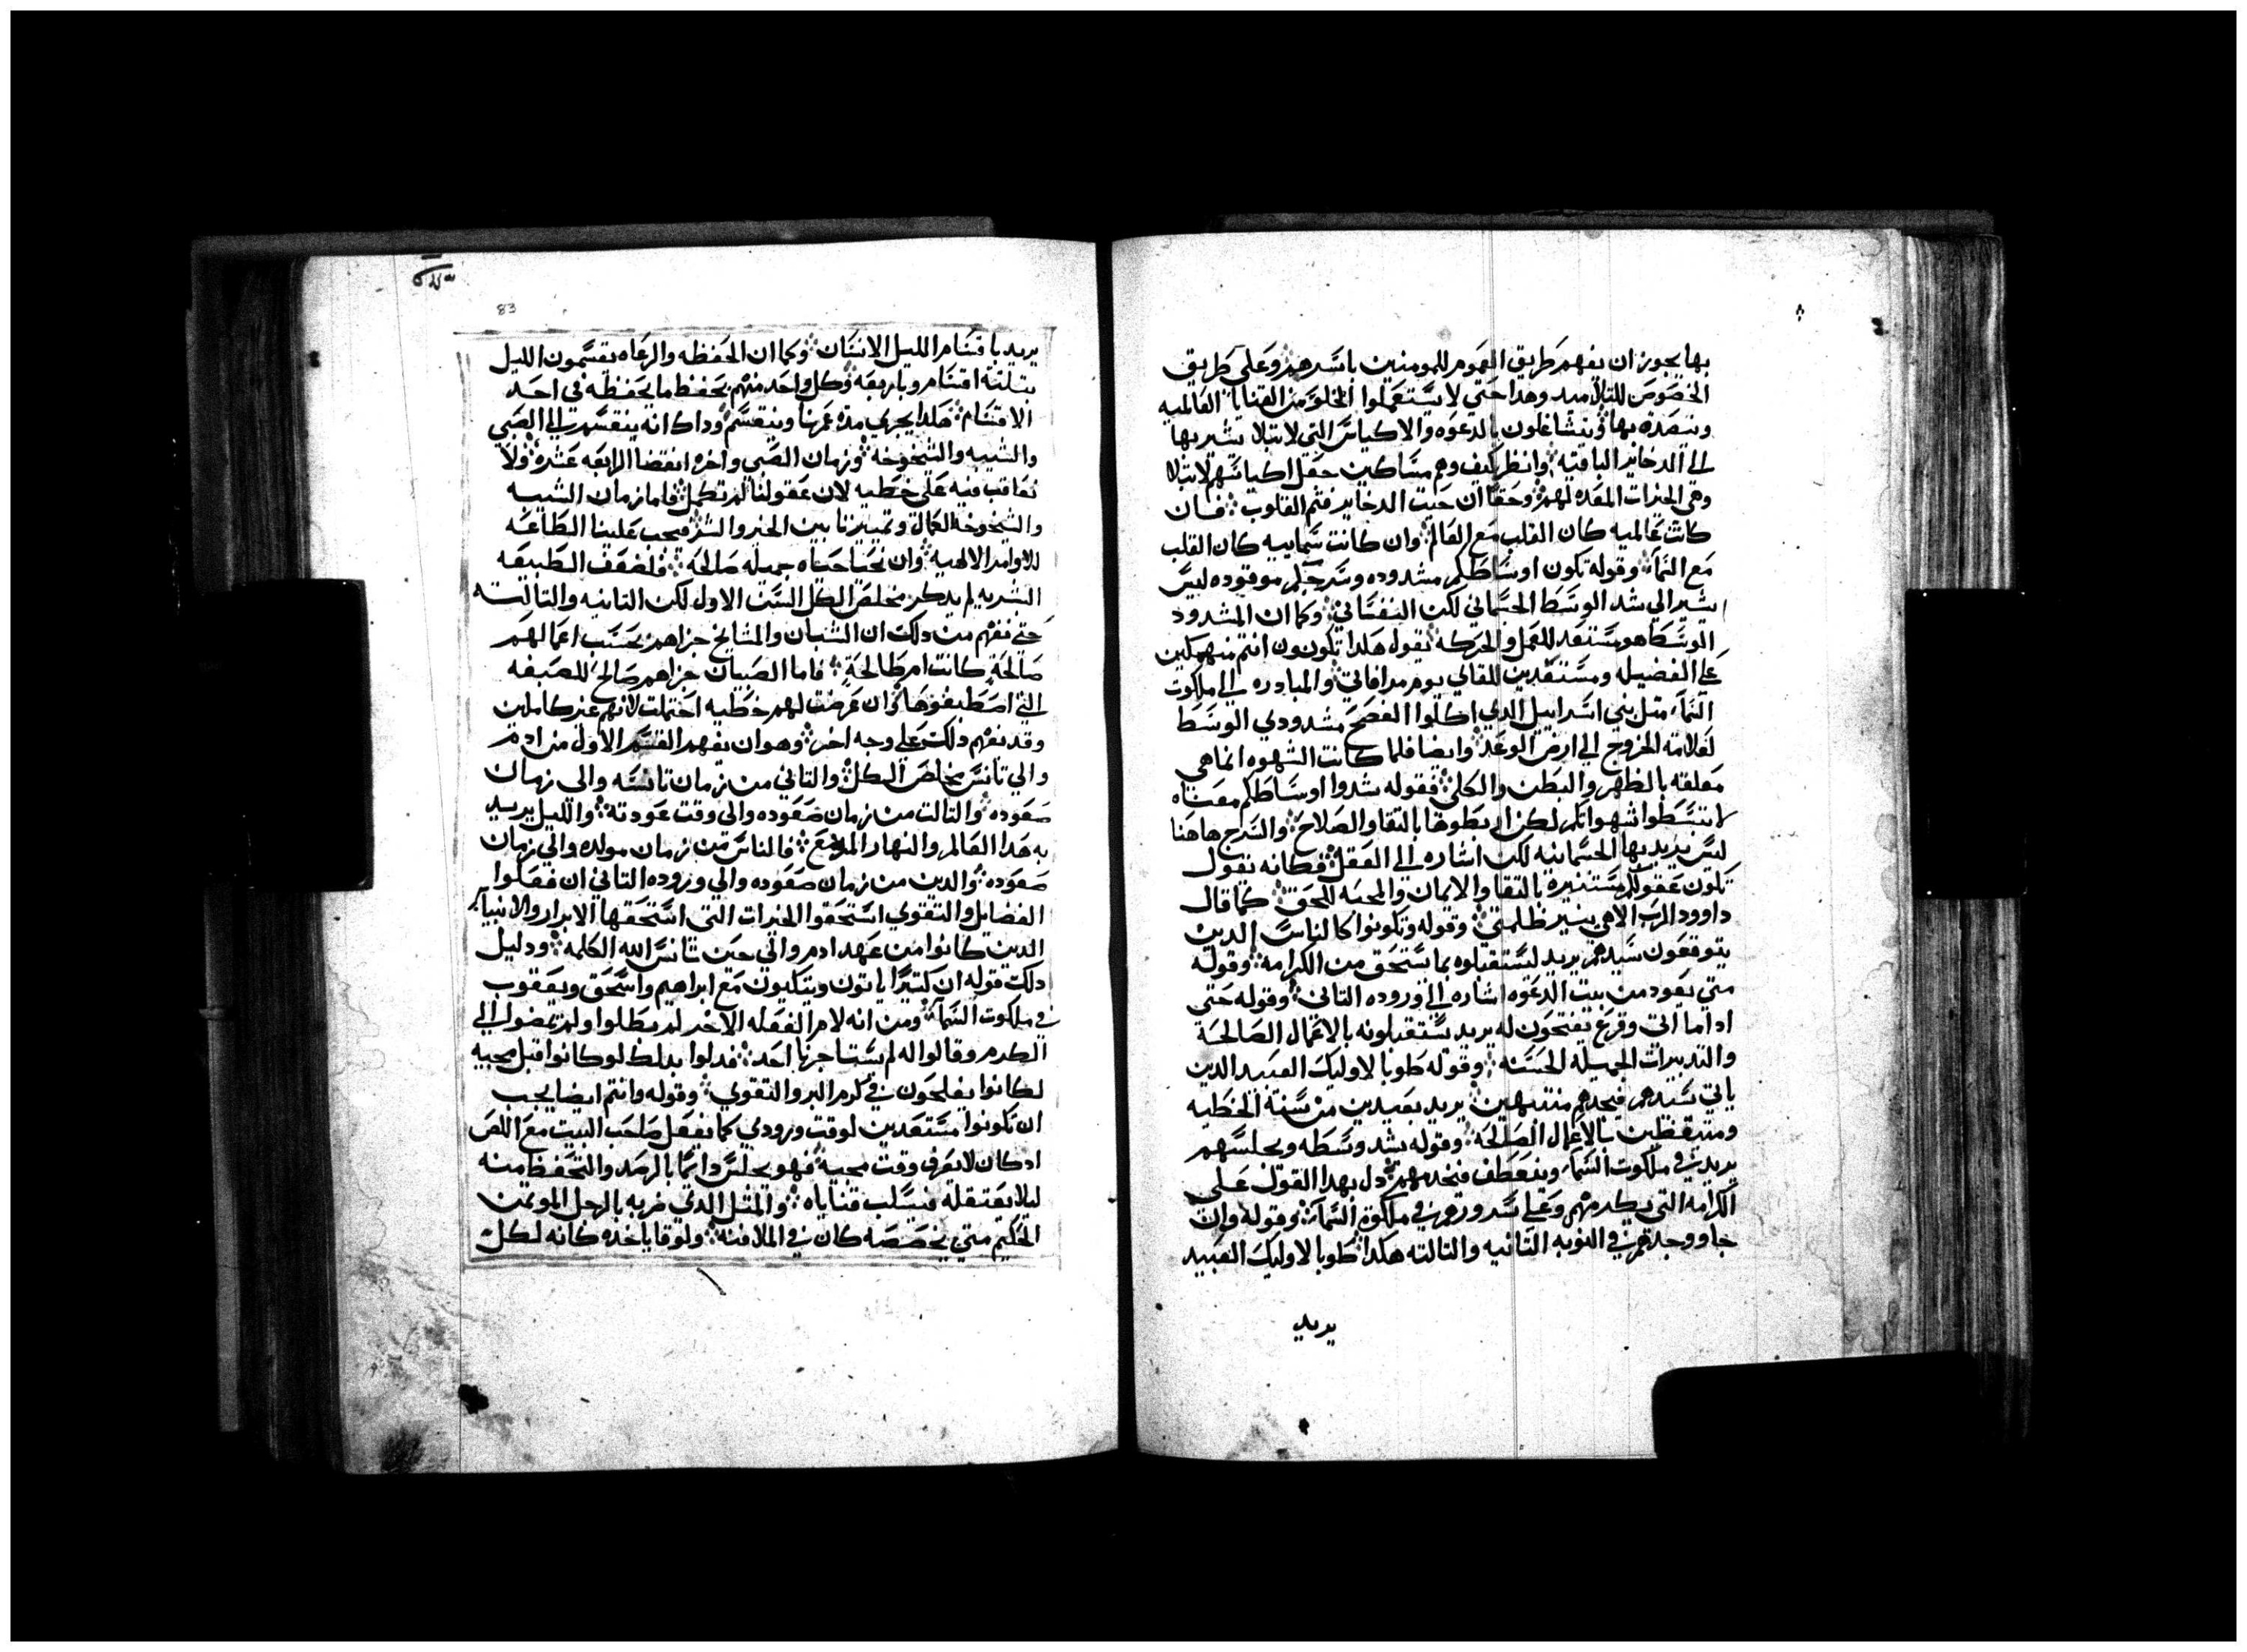 بها يجوز ان يفهم طريق العموم للمومنين باسرهم وعلى طريق
الخصوص للتلاميد وهدا حتي لا يستعملوا الخلو من القنايا العالميه
ويتصدق بها ويتشاغلون بالدعوه والاكياس التي لا تبلا يشير بها
الى الدخاير الباقيه وانظر كيف وهم مساكين جعل اكياسهم لا تبلا
وهي الخيرات المعده لهم وحقا ان حيت الدخاير فثم القلوب فان
كانت عالميه كان القلب مع العالم وان كانت سماييه كان القلب
مع السما وقوله تكون اوساطكم مشدوده وسرجكم موقوده ليس
يشير الي شد الوسط الجسماني لكن النفساني وكما ان المشدود
الوسط هو مستعد للعمل والحركه يقول هكدا تكونون انتم منهمكين
على الفضيله ومستعدين للقاي يوم موافاتي والمبادره الى ملكوت
السما مثل بني اسراييل الدي اكلوا الفصح مشدودي الوسط
لعلامة الخروج الي ارض الوعد وايضا فلما كانت الشهوه انما هي
معلقه بالظهر والبطن والكلي فقوله شدوا اوساطكم معناه
لا تبسطوا شهواتكم لكن اربطوها بالتقا والصلاح والسرج هاهنا
ليس يريد بها الجسمانيه لكن اشاره الى العقل فكانه يقول
تكون عقولكم مستنيره بالتقا والايمان والمحبه للحق كما قال
داوود الرب الاهي ينير ظلمتي وقوله وتكونوا كالناس الدين
يتوقعون سيدهم يريد ليستقبلوه بما يستحق من الكرامه وقوله
متي يعود من بيت الدعوه اشاره الى وروده التاني وقوله حتى
اداما اتى وقرع يفتحون له يريد يستقبلونه بالاعمال الصالحة
والتدبيرات الجميلة الحسنه وقوله طوبا لاوليك العبيد الدين
ياتي سيدهم فيجدهم منتبهين يريد بعيدين من سنة الخطيه
ومتيقظين بالاعمال الصالحه وقوله يشد وسطه ويجلسهم
يريد في ملكوت السما وينعطف فيخدمهم دل بهدا القول على
الكرامه التي يكرمهم وعلى سرورهم في ملكوة السما وقوله وان
جا ووجدهم في النوبه الثانيه والتالته هكدا طوبا لاوليك العبيد
يريد
83
يريد باقسام الليل الانسان وكما ان الحفظه والرعاه يقسمون الليل
بتلتة اقسام وباربعه وكل واحد منهم يحفظ ما يحفظه في احد
الاقسام هكدا يجري مدة عمرنا وينقسم وداك انه ينقسم الى الصبي
والشبيبه والشيخوخه وزمان الصبي واخره انقضا الرابعه عشره ولا
نعاقب فيه على خطيه لان عقولنا لم تكمل فاما زمان الشبيبه
والشيخوخه لكمال وتمييزنا بين الخير والشر فيجب علينا الطاعه
للاوامر الالهيه وان نحيا حياه جميله صالحه فلضعف الطبيعه
البشريه لم يدكر مخلص الكل السن الاول لكن التانيه والتالته
حتي نفهم من دلك ان الشبان والمشايخ جزاهم بحسب اعمالهم
صالحة كانت ام طالحة فاما الصبيان جزاهم صالح للصبغه
التي اصطبغوها وان عرضت لهم خطيه احتملت لانهم غير كاملين
وقد نفهم دلك على وجه اخر وهو ان نفهم القسم الاول من ادم
والي تانس مخلص الكل والتاني من زمان تانسه والى زمان
صعوده والتالت من زمان صعوده والى وقت عودته والليل يريد
به هدا العالم والنهار المزمع فالناس من زمان مولده والي زمان
صعوده والدين من زمان صعوده والي وروده التاني ان فعلوا
الفضايل والتقوي استحقوا الخيرات التى استحقها الابرار والانبيا
الدين كانوا من عهد ادم والي حين تانس الله الكلمه ودليل
دلك قوله ان كتيرا ياتون ويتكيون مع ابراهيم واسحق ويعقوب
في ملكوت السما ومن انه لام الفعله الاخر لم بطلوا ولم يمضوا الي
الكرم وقالوا له لم يستاجرنا احد فدلوا بدلك لو كانوا قبل مجيه
لكانوا يفلحون في كرم البر والتقوي وقوله وانتم ايضا يجب
ان تكونوا مستعدين لوقت ورودي كما يفعل صاحب البيت مع اللص
اد كان لا يعرف وقت مجيه فهو يجلس دايما بالرصد والتحفظ منه
ليلا يغتفله فيسلب قناياه والمتل الدي ضربه بالرجل الموتمن
الحكيم متي يخصصه كان في الملافنه ولوقا ياخده كانه لكل